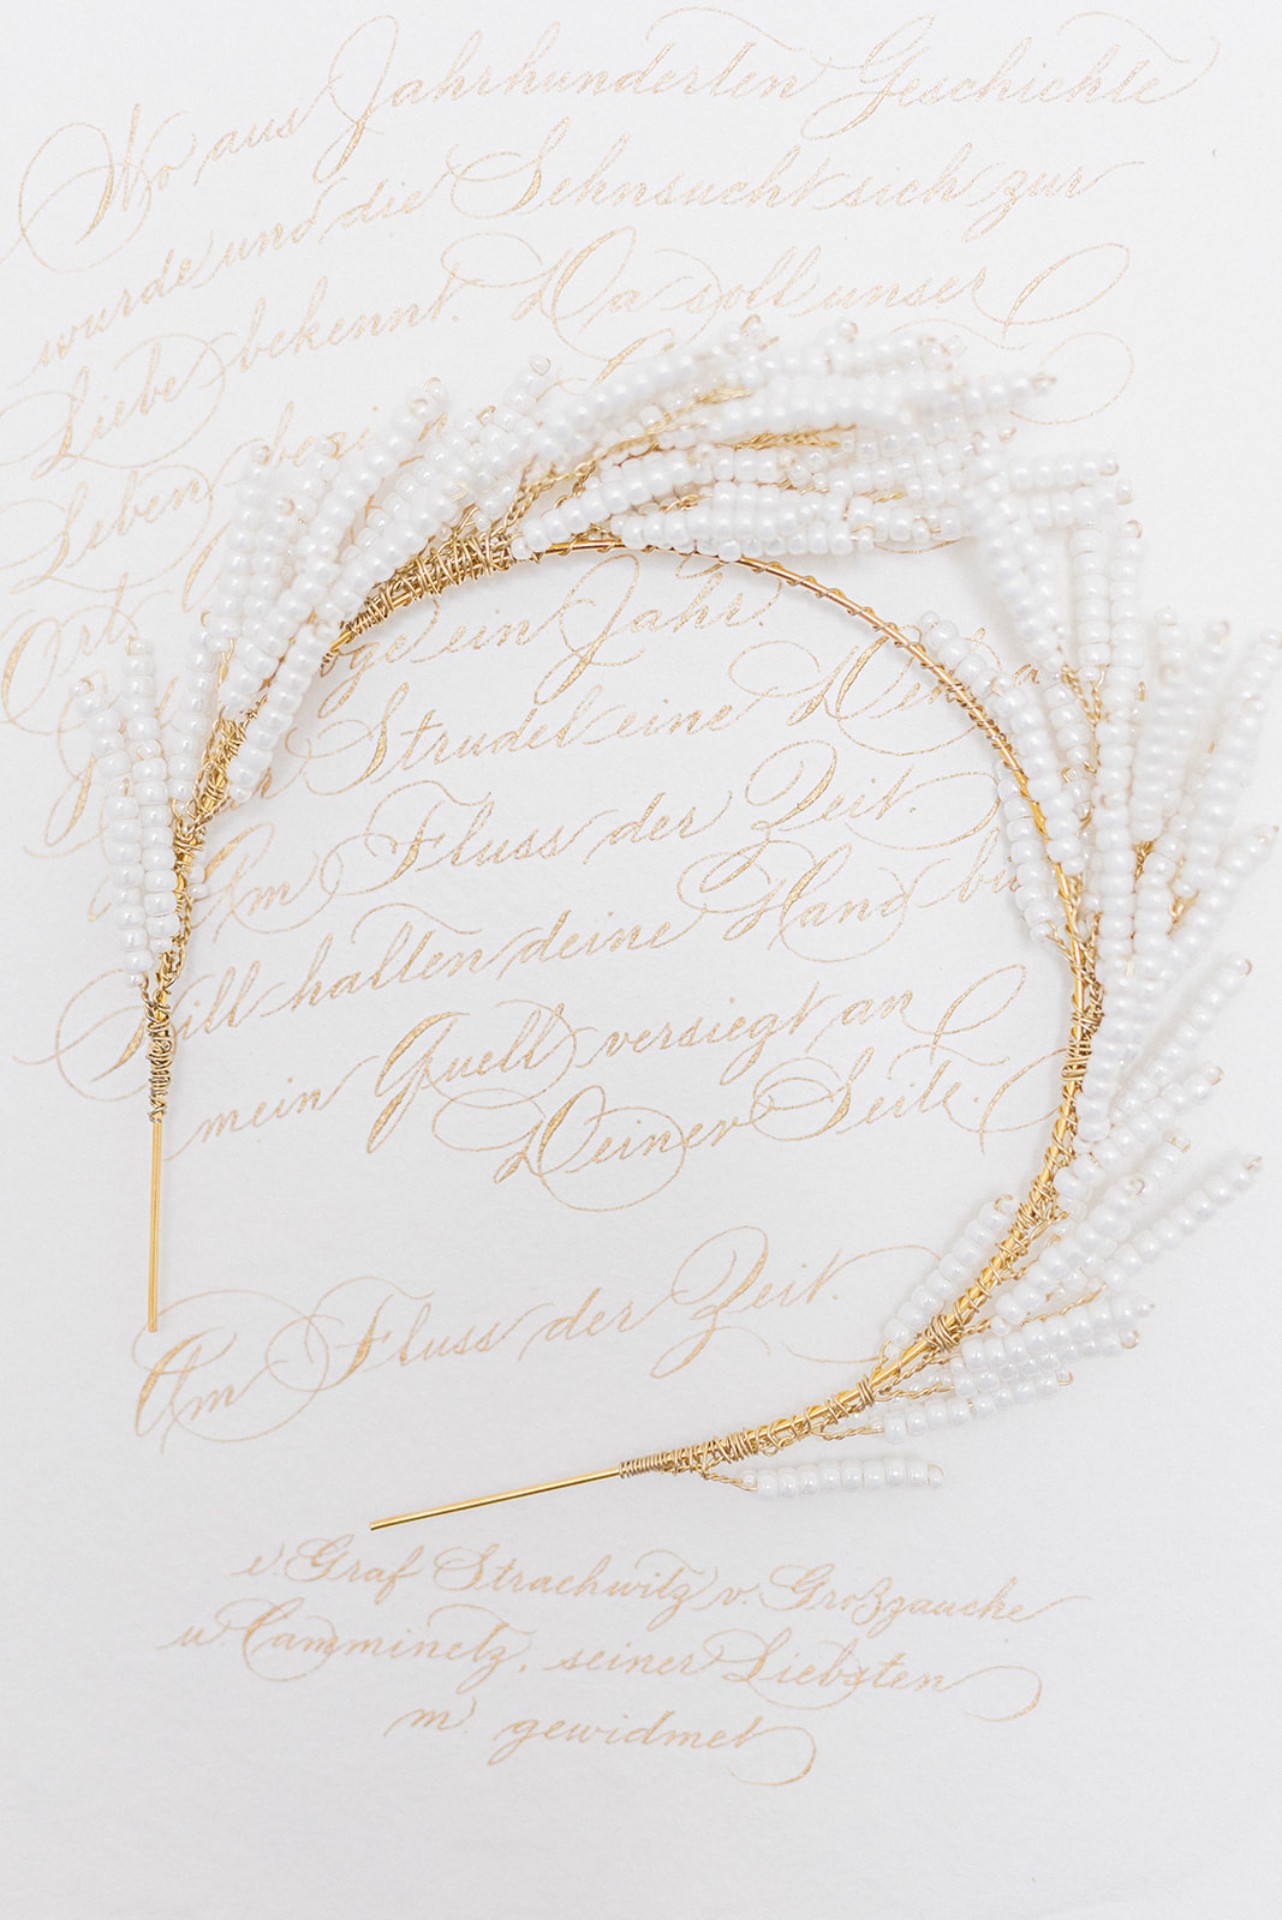 Wo aus Jahrhunderten Geschichte
wurde und die Sehnsucht sich zur
Liebe bekennt. Da soll unser
Leben
Ort ein Jahr.
Strudel eine
Am Fluss der Zeit.
Will halten deine Hand
mein Quell versiegt an
Deiner Seite.
Am Fluss der Zeit.
v. Graf Strachwitz v. Großzauche
u. Camminetz, seiner Liebsten
m. gewidmet